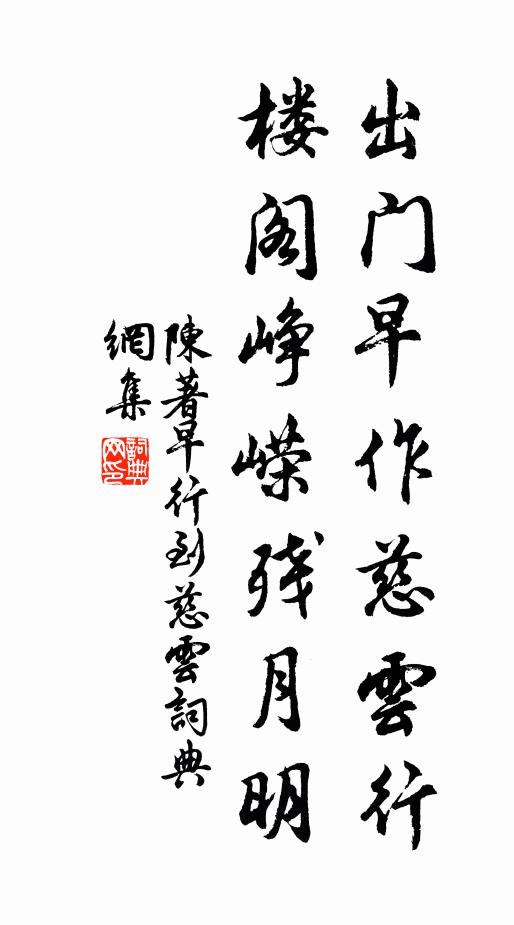 出门早作慈雲行
楼阁峥嵘残月明
陳著早行到慈雲詞典
網集
詞典
网印